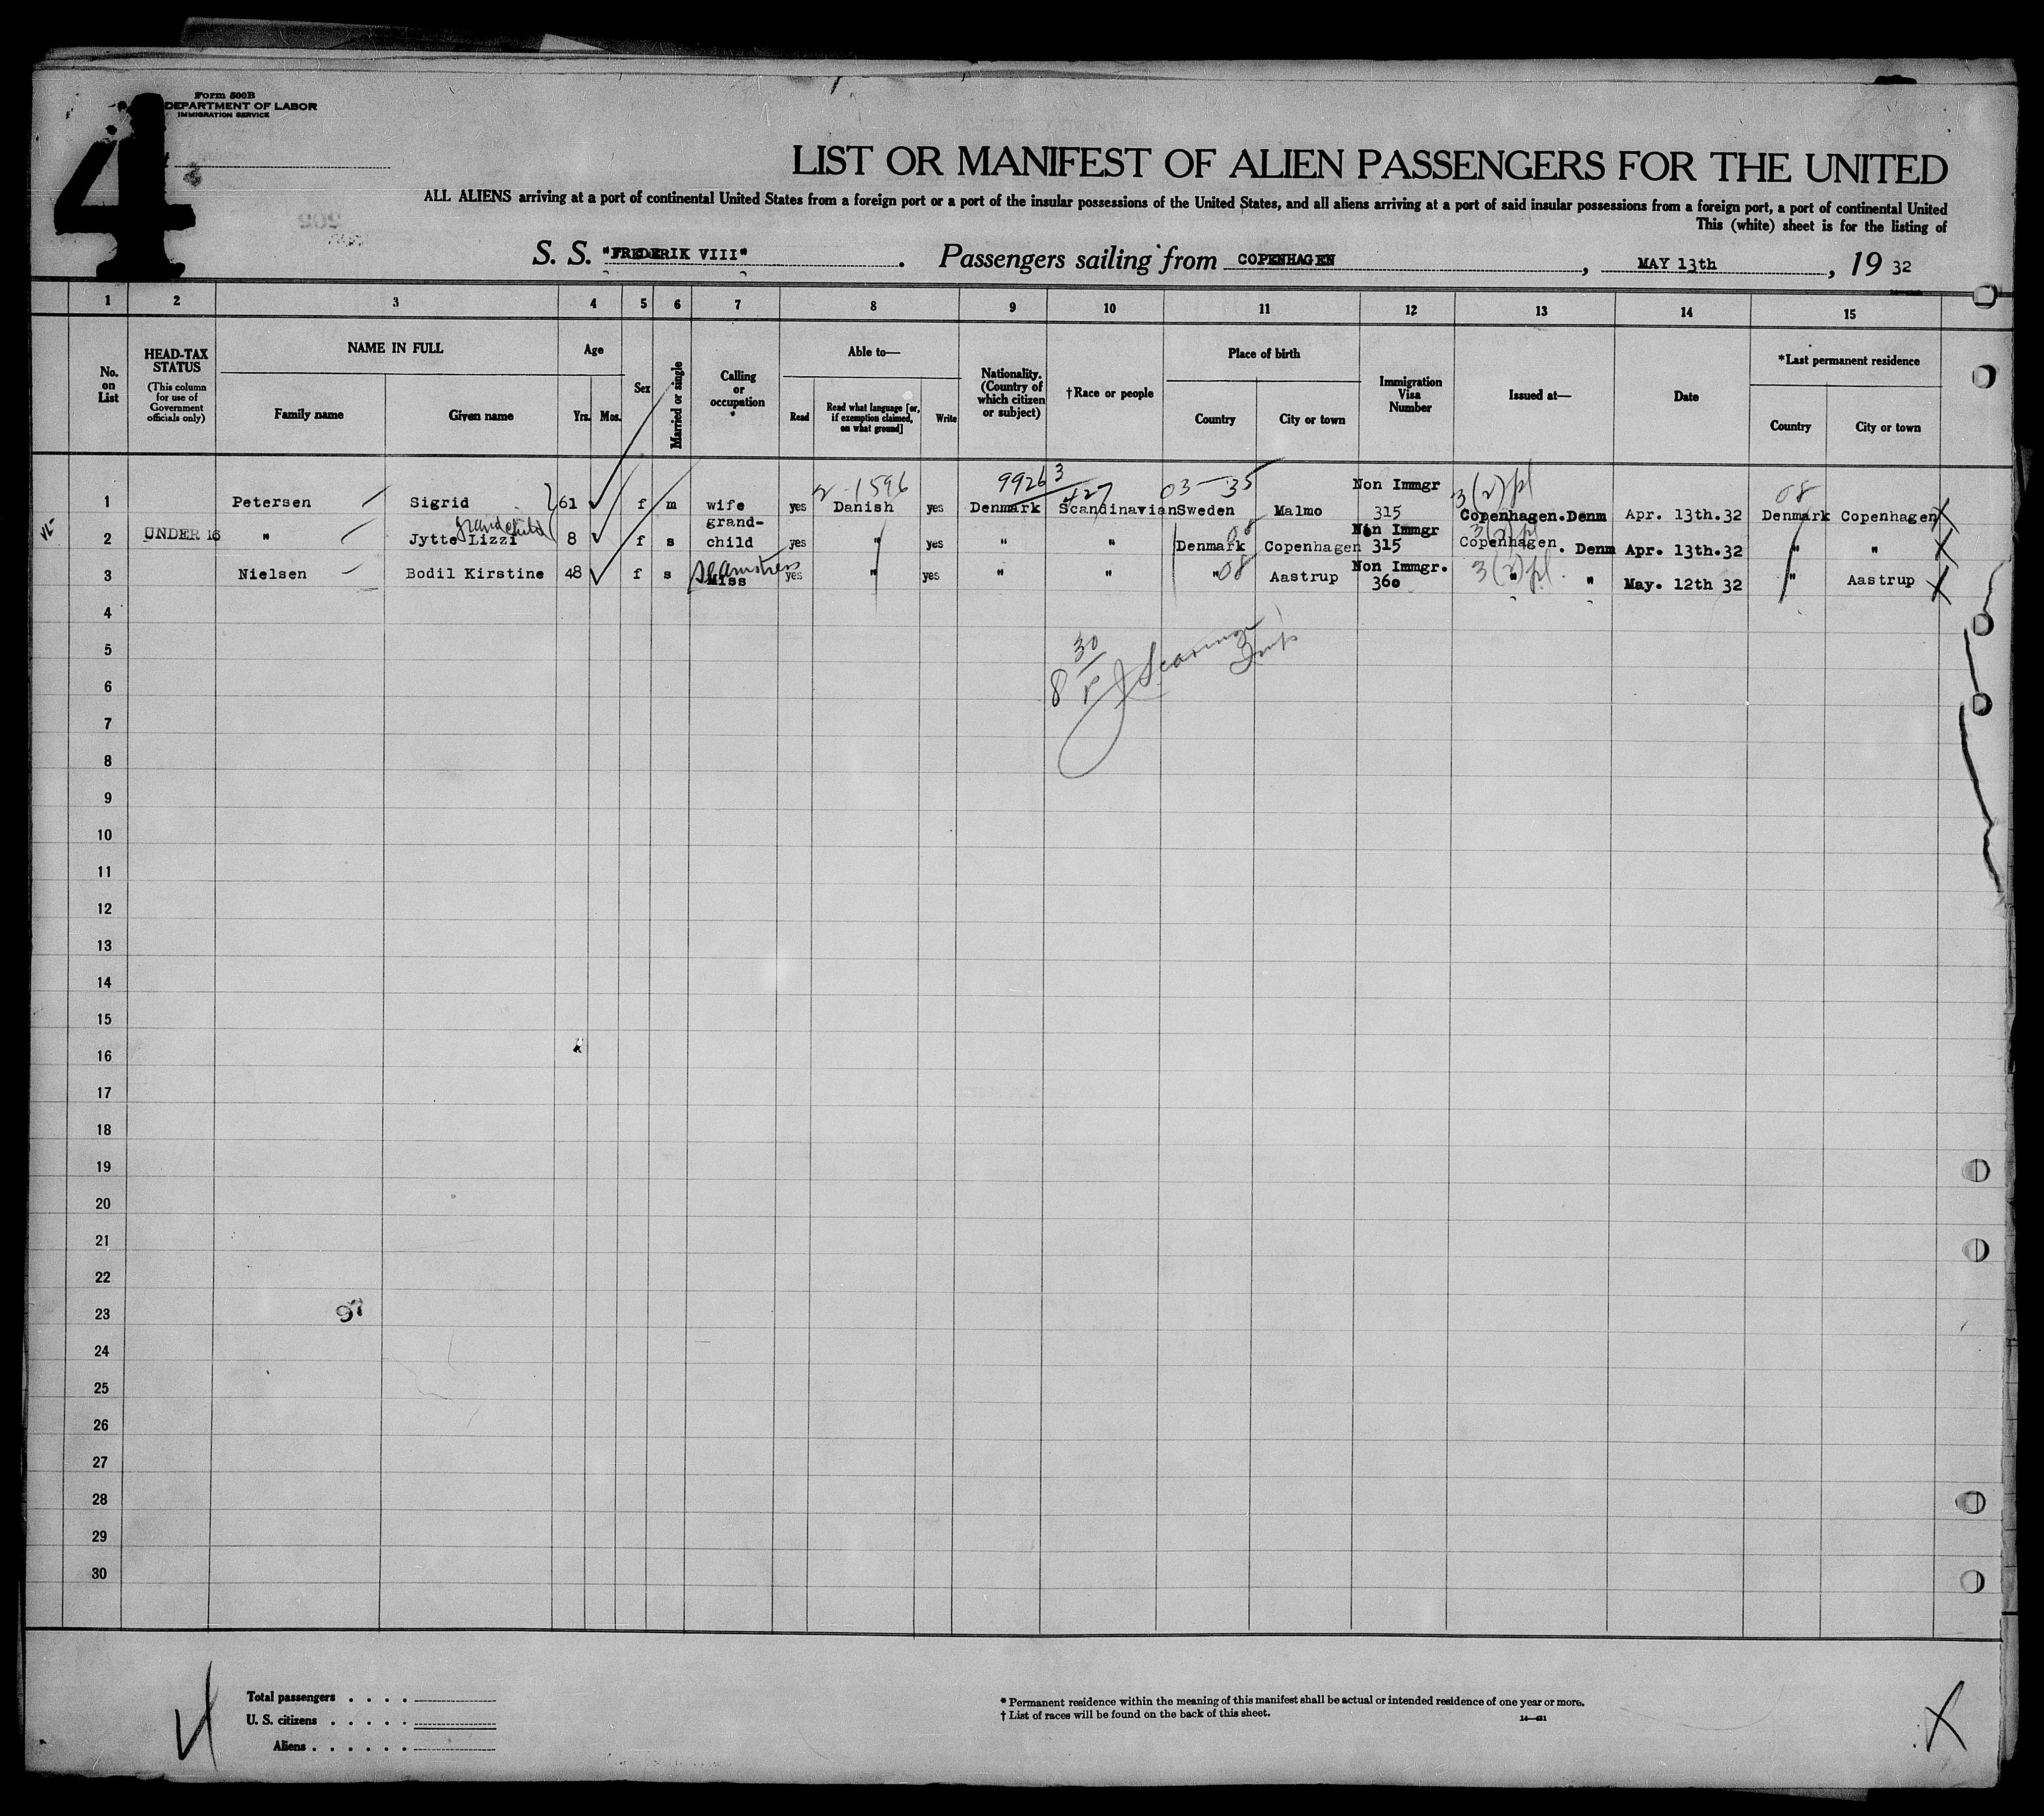 Form 500B
DEPARTMENT OF LABOR
IMMIGRATION SERVICE
4
LIST OR MANIFEST OF ALIEN PASSENGERS FOR THE UNITED
ALL ALIENS arriving at a port of continental United States from a foreign port or a port of the insular possessions of the United States, and all aliens arriving at a port of said insular possessions from a foreign port, a port of continental United
This (white) sheet is for the listing of
S. S. "FREDERIK VIII". Passengers sailing from COPENHAGEN, MAY 13th, 19 32
1 2 3 4 5 6 7 8 9 10 11 12 13 14 15
No. on List
HEAD-TAX STATUS (This column for use of Government officials only)
NAME IN FULL Family name Given name
Age Yrs. Mos.
Sex
Married or single
Calling or occupation
Able to— Read Read what language [or, if exemption claimed, on what ground] Write
Nationality. (Country of which citizen or subject)
†Race or people
Place of birth Country City or town
Immigration Visa Number
Issued at—
Date
*Last permanent residence Country City or town
99263 2-1596 427 03-35 3(2)pl 08
1 Petersen Sigrid 61 f m wife yes Danish yes Denmark Scandinavian Sweden Malmo Non Immgr 315 Copenhagen.Denm Apr. 13th.32 Denmark Copenhagen
grandchild 08 3(2)pl
2 UNDER 16 " Jytte Lizzi 8 f s grand-child yes " yes " " Denmark Copenhagen Non Immgr 315 Copenhagen. Denm Apr. 13th.32 " "
Seamstress 08 3(2)pl
3 Nielsen Bodil Kirstine 48 f s Miss yes " yes " " " Aastrup Non Immgr. 360 " " May. 12th 32 " Aastrup
4
5
6
8 30
7
8
9
10
11
12
13
14
15
16
17
18
19
20
21
22
23
97
24
25
26
27
28
29
30
Total passengers . . . .
U. S. citizens . . . . .
Aliens . . . . . .
* Permanent residence within the meaning of this manifest shall be actual or intended residence of one year or more.
† List of races will be found on the back of this sheet.
14—431